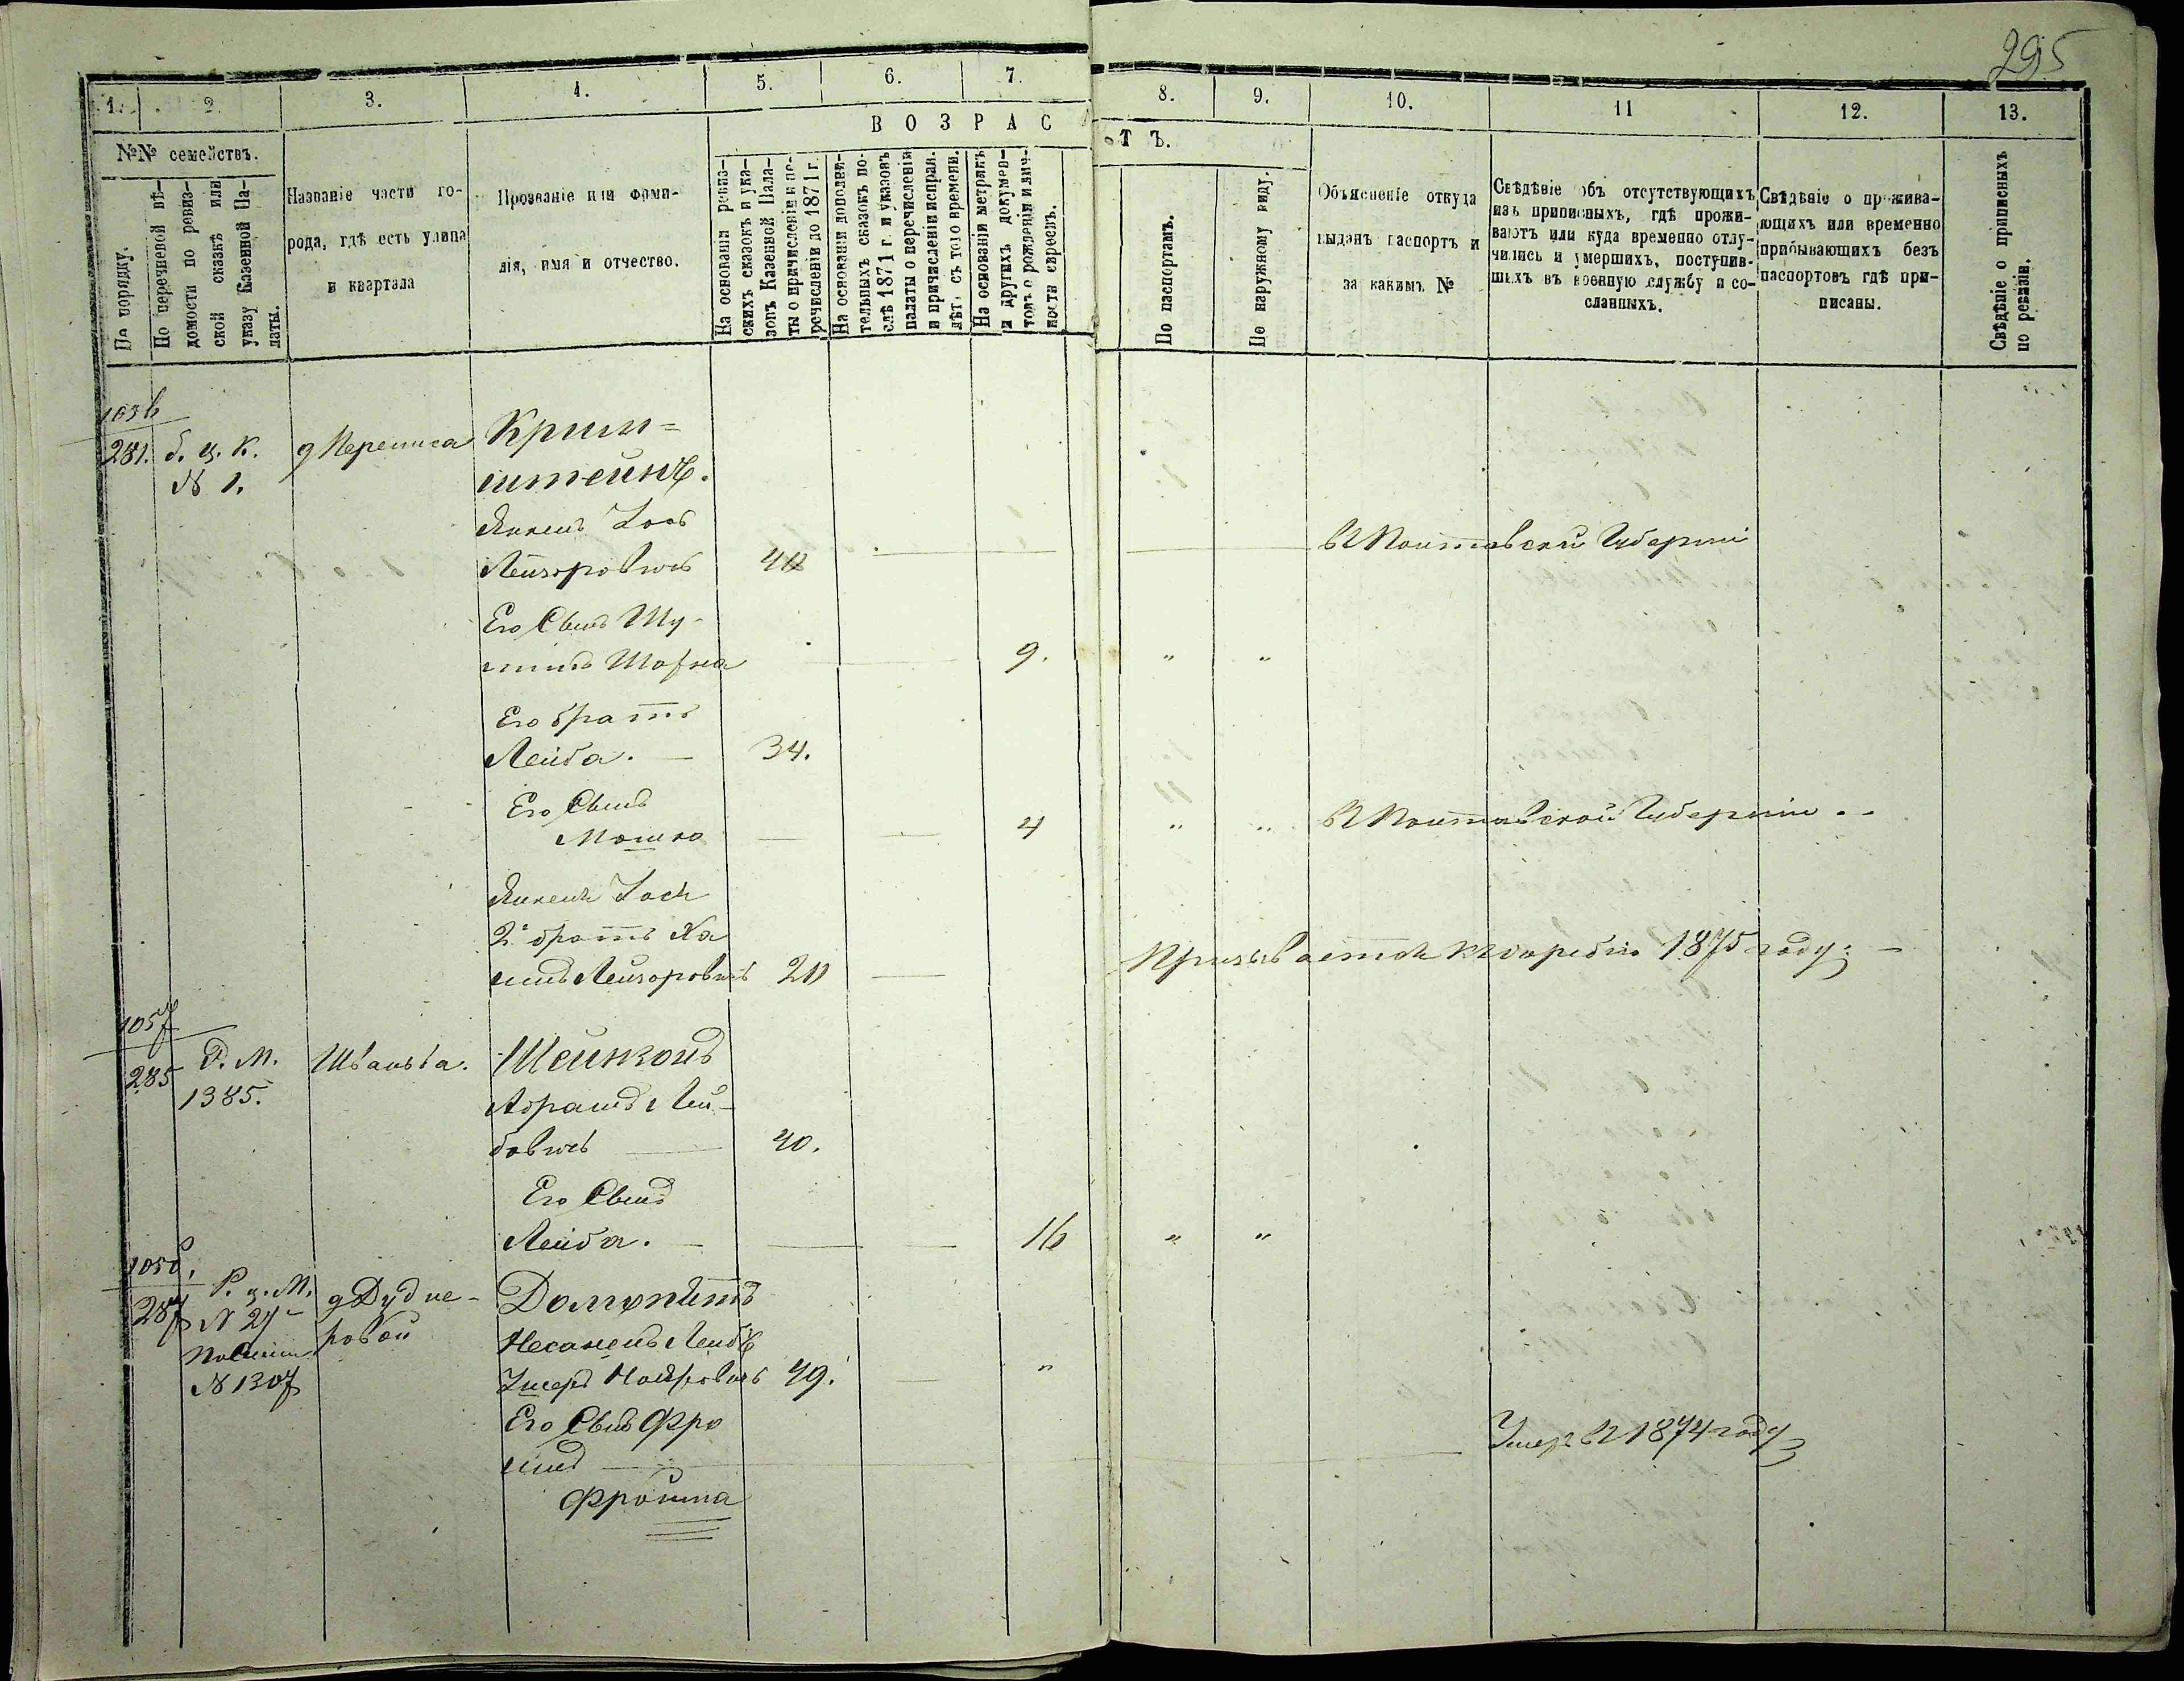 295
1. 2. 3. 4. 5. 6. 7. 8. 9. 10. 11 12. 13.
№№ семействъ.
По порядку.
По перечневой вѣ-
домости по ревиз-
ской сказкѣ или
указу Казенной Па-
латы.
Названіе части го-
рода, гдѣ есть улица
и квартала
Прозваніе или фами-
лія, имя и отчество.
ВОЗРАСТЪ.
На основаніи ревиз-
скихъ сказокъ и ука-
зовъ Казенной Пала-
ты о причисленіи и пе-
речисленіи до 1871 г.
На основаніи дополни-
тельныхъ сказокъ по-
слѣ 1871 г. и указовъ
палаты о перечисленіи
и причисленіи исправ.
лѣт. съ того времени.
На основаніи метрикъ
и другихъ докумен-
товъ о рожденіи и лич-
ности евреевъ.
По паспортамъ.
По наружному виду.
Объясненіе откуда
выданъ паспортъ и
за какимъ №
Свѣдѣніе объ отсутствующихъ
изъ приписныхъ, гдѣ прожи-
ваютъ или куда временно отлу-
чились и умершихъ, поступив-
шихъ въ военную службу и со-
сланныхъ.
Свѣдѣніе о прожива-
ющихъ или временно
прибывающихъ безъ
паспортовъ гдѣ при-
писаны.
Свѣдѣніе о приписныхъ
по ревизіи.
1056
281. б. ц. К. д Переписа Крин=
№ 1. штейнъ.
Янкель Іось
Лейзоровичъ 40 Въ Полтавской Губерніи
Его Сынъ Шу-
9. " "
Его братъ
Лейба. — 34.
Его Сынъ
Мошко — — 4 " " Въ Полтавской Губерніи
Янкеля Іося
2й братъ Ха
имъ Лейзоровичъ 20 — Призывается къ жребію 1875 году. —
1057
285 Р. М. Шейнкопъ
1385. Абрамъ Лей-
бовичъ — 40.
Его Сынъ
Лейба. — — — 16 " "
1058.
287 Р. ц. М.
№ 27
№ 1307
Лейбъ
49. — "
Его Сынъ Фро
имъ — Умеръ въ 1874 году
Фройма